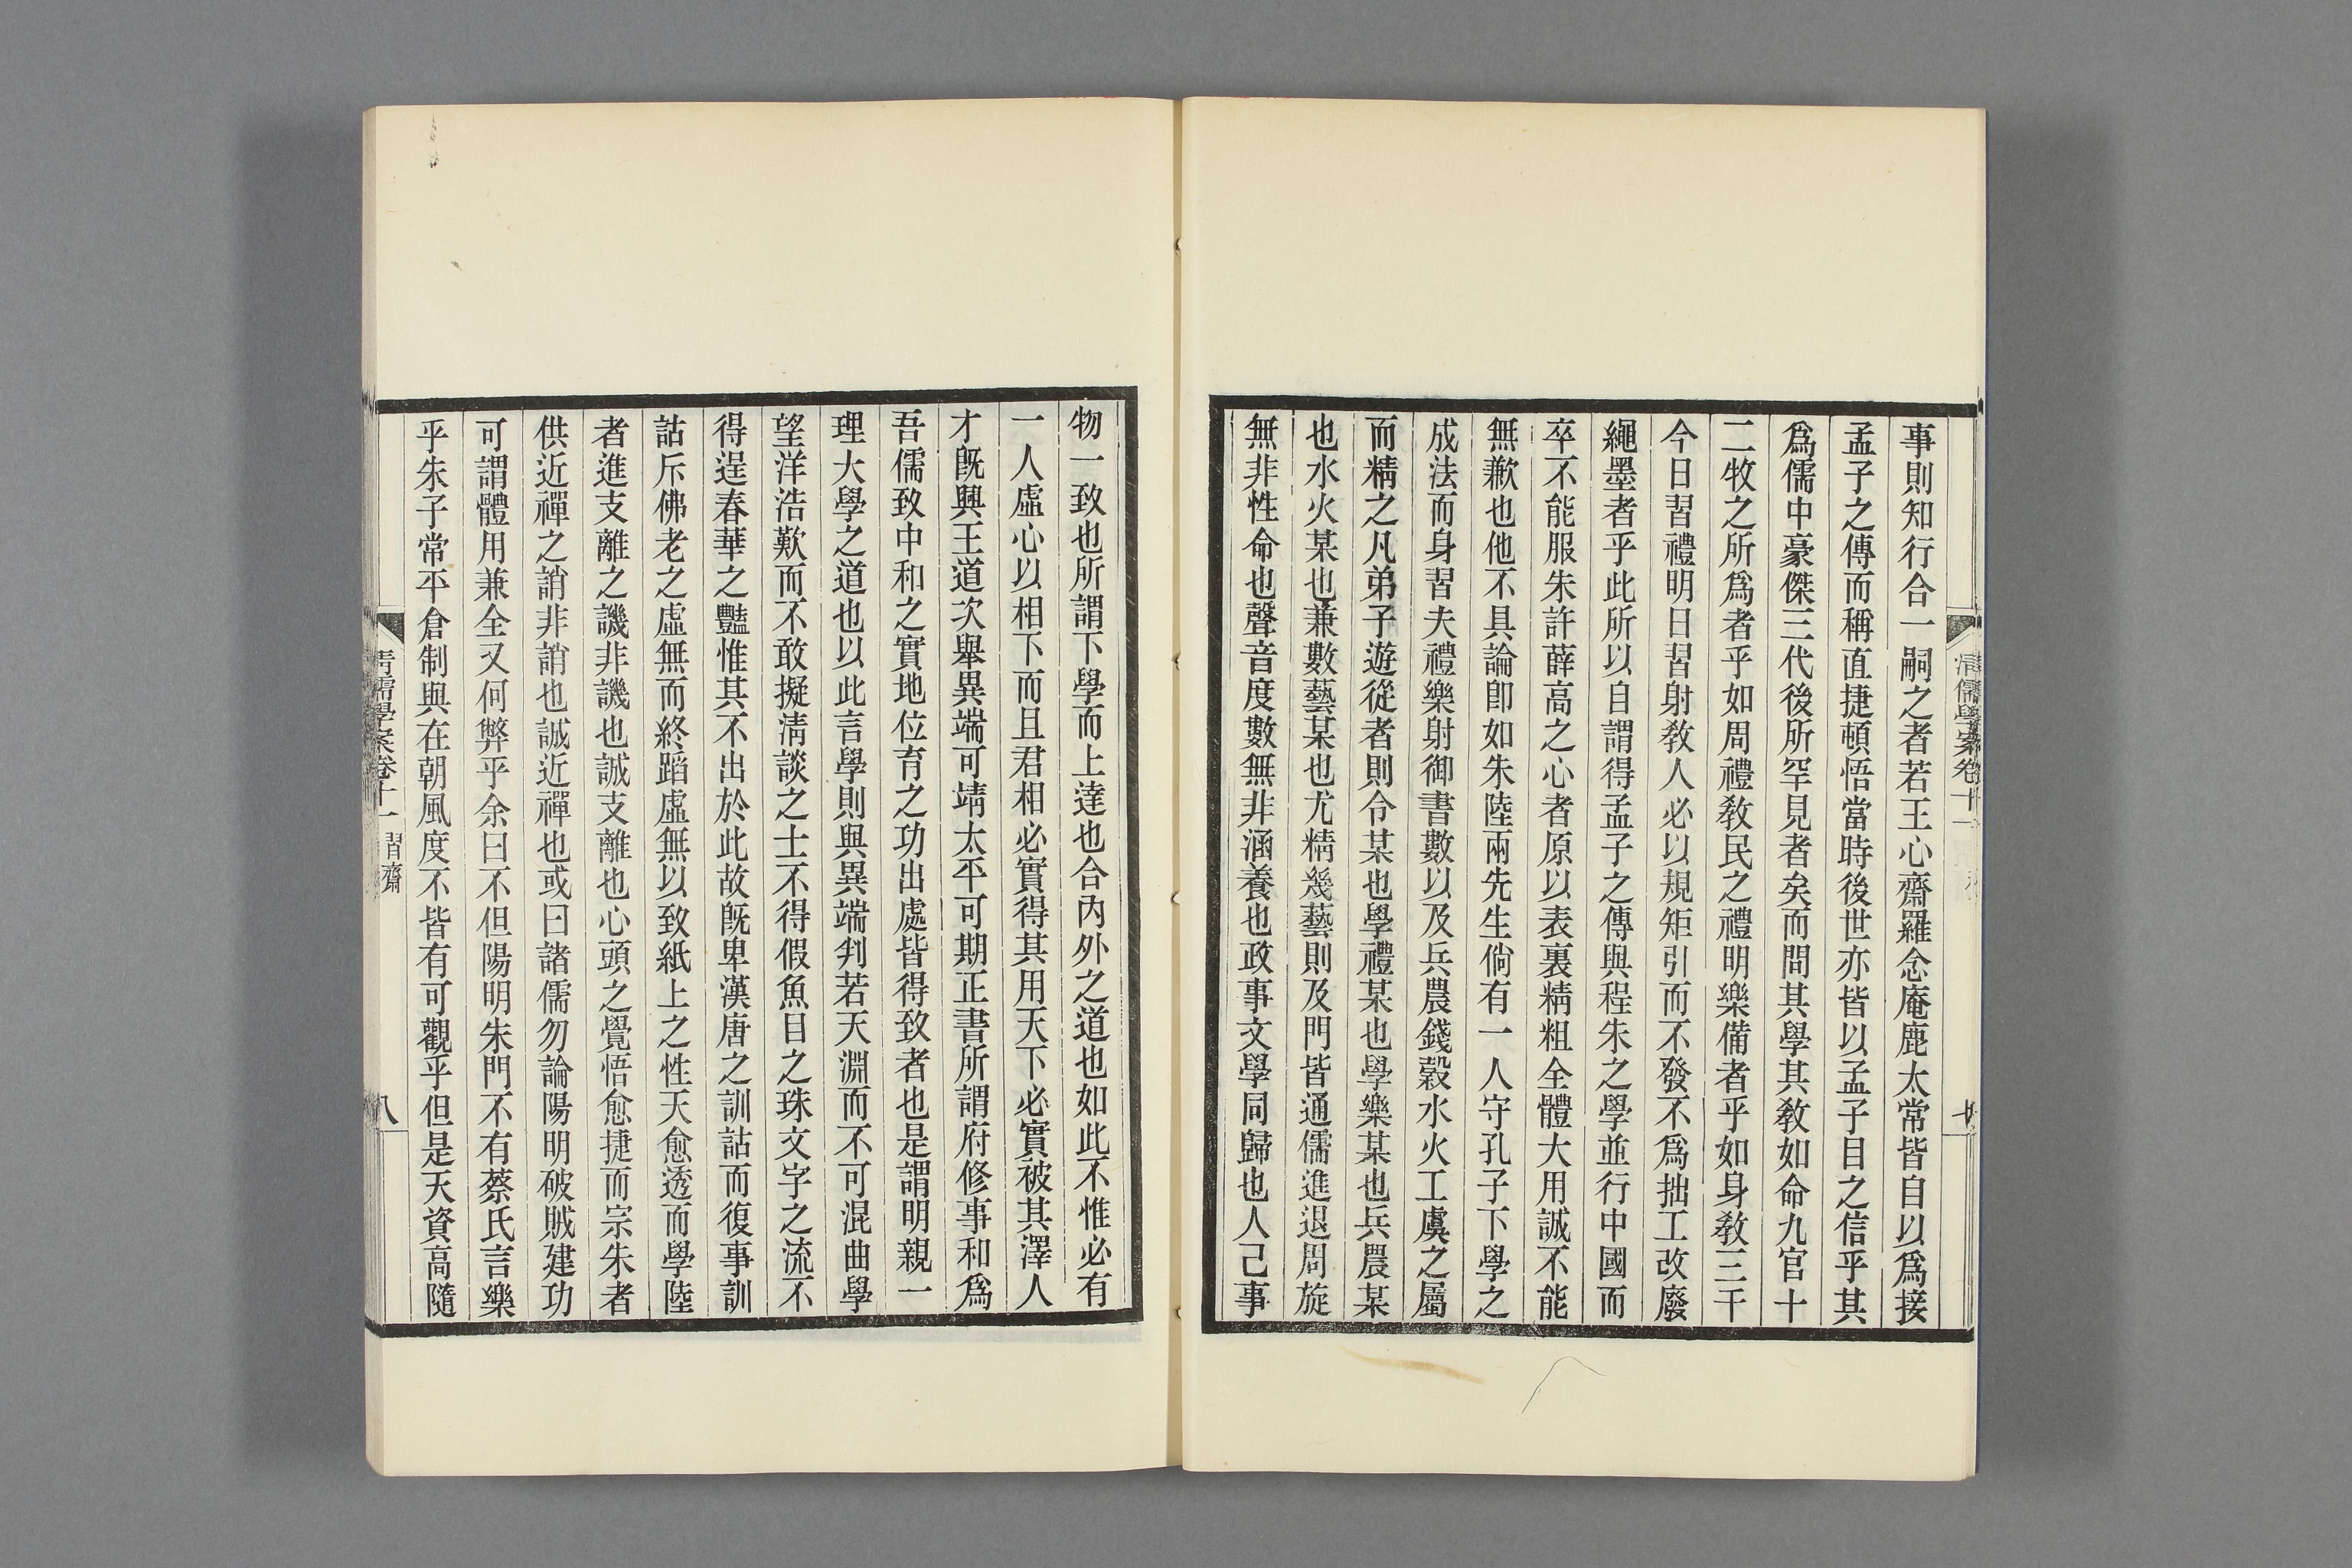 清儒學案卷十一
事則知行合一嗣之者若王心齋羅念庵鹿太常皆自以爲接
孟子之傳而稱直捷頓悟當時後世亦皆以孟子目之信乎其
爲儒中豪傑三代後所罕見者矣而問其學其敎如命九官十
二牧之所爲者乎如周禮敎民之禮明樂備者乎如身敎三千
今日習禮明日習射敎人必以規矩引而不發不爲拙工改廢
繩墨者乎此所以自謂得孟子之傳與程朱之學並行中國而
卒不能服朱許薛高之心者原以表裏精粗全體大用誠不能
無歉也他不具論卽如朱陸兩先生倘有一人守孔子下學之
成法而身習夫禮樂射御書數以及兵農錢穀水火工虞之屬
而精之凡弟子遊從者則令某也學禮某也學樂某也兵農某
也水火某也兼數藝某也尤精幾藝則及門皆通儒進退周旋
無非性命也聲音度數無非涵養也政事文學同歸也人己事
物一致也所謂下學而上達也合內外之道也如此不惟必有
一人虛心以相下而且君相必實得其用天下必實被其澤人
才旣興王道次舉異端可靖太平可期正書所謂府修事和爲
吾儒致中和之實地位育之功出處皆得致者也是謂明親一
理大學之道也以此言學則與異端判若天淵而不可混曲學
望洋浩歎而不敢擬淸談之士不得假魚目之珠文字之流不
得逞春華之豔惟其不出於此故旣卑漢唐之訓詁而復事訓
詁斥佛老之虛無而終蹈虛無以致紙上之性天愈透而學陸
者進支離之譏非譏也誠支離也心頭之覺悟愈捷而宗朱者
供近禪之誚非誚也誠近禪也或曰諸儒勿論陽明破賊建功
可謂體用兼全又何弊乎余曰不但陽明朱門不有蔡氏言樂
乎朱子常平倉制與在朝風度不皆有可觀乎但是天資高隨
清儒學案卷十一 習齋
八